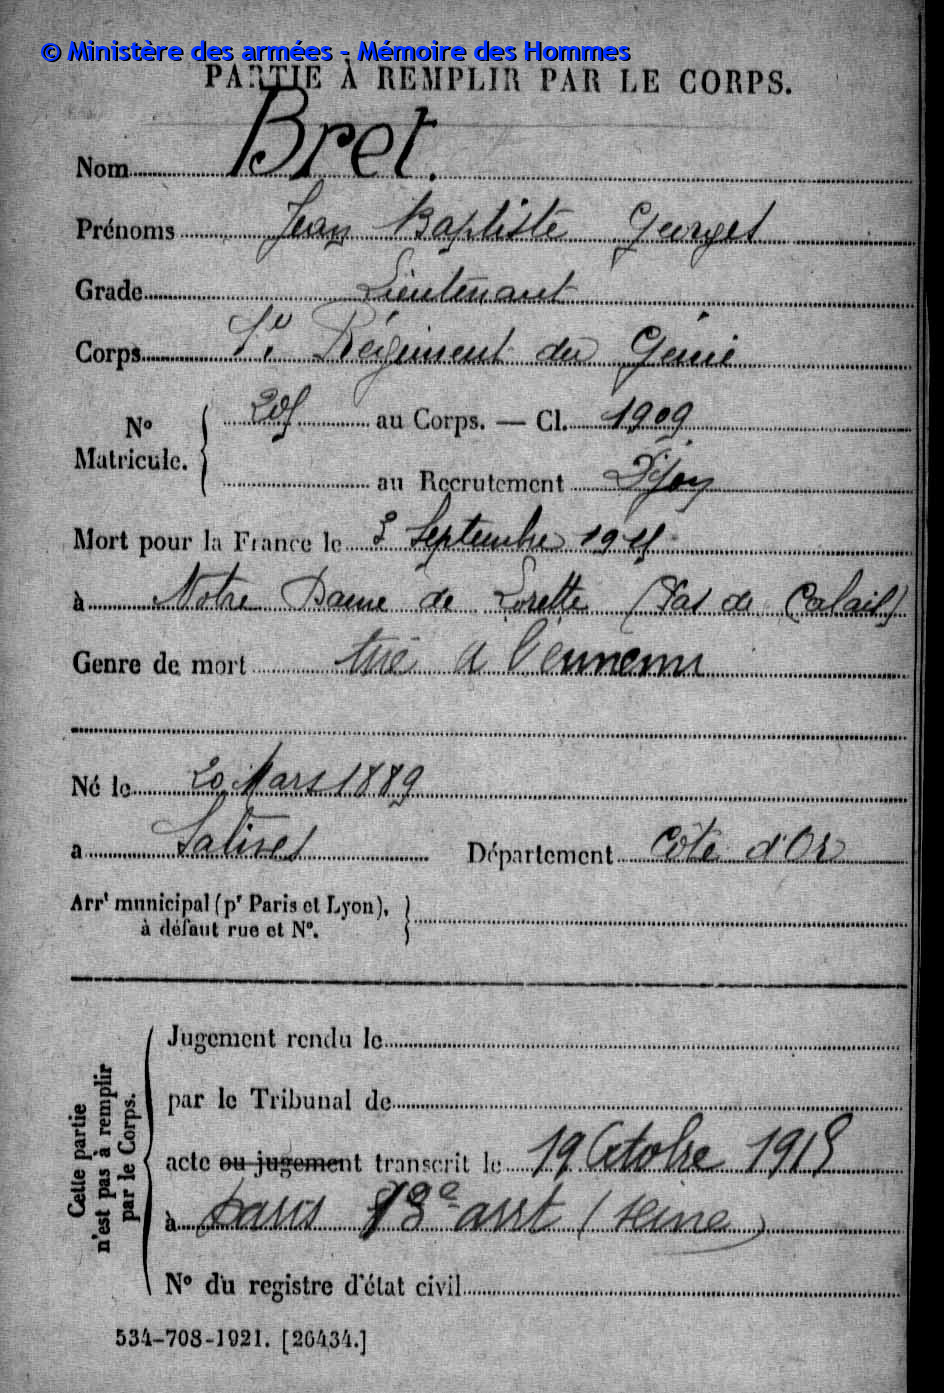 © Ministère des armées - Mémoire des Hommes
PARTIE À REMPLIR PAR LE CORPS.
Nom Bret.
Prénoms Jean Baptiste Georges
Grade Lieutenant
Corps Régiment du Génie
N° Matricule. au Corps. — Cl. 1909
au Recrutement Dijon
Mort pour la France le 3 Septembre 1915
à Notre Dame de Lorette (Pas de Calais)
Genre de mort tué à l'ennemi
Né le 20 Mars 1889
a Salives Département Côte d'Or
Arrt municipal (pr Paris et Lyon),
à défaut rue et N°.
Cette partie
n'est pas à remplir
par le Corps.
Jugement rendu le
par le Tribunal de
acte ou jugement transcrit le 19 Octobre 1915
à Paris 13e arrt (Seine)
N° du registre d'état civil
534-708-1921. [26434.]